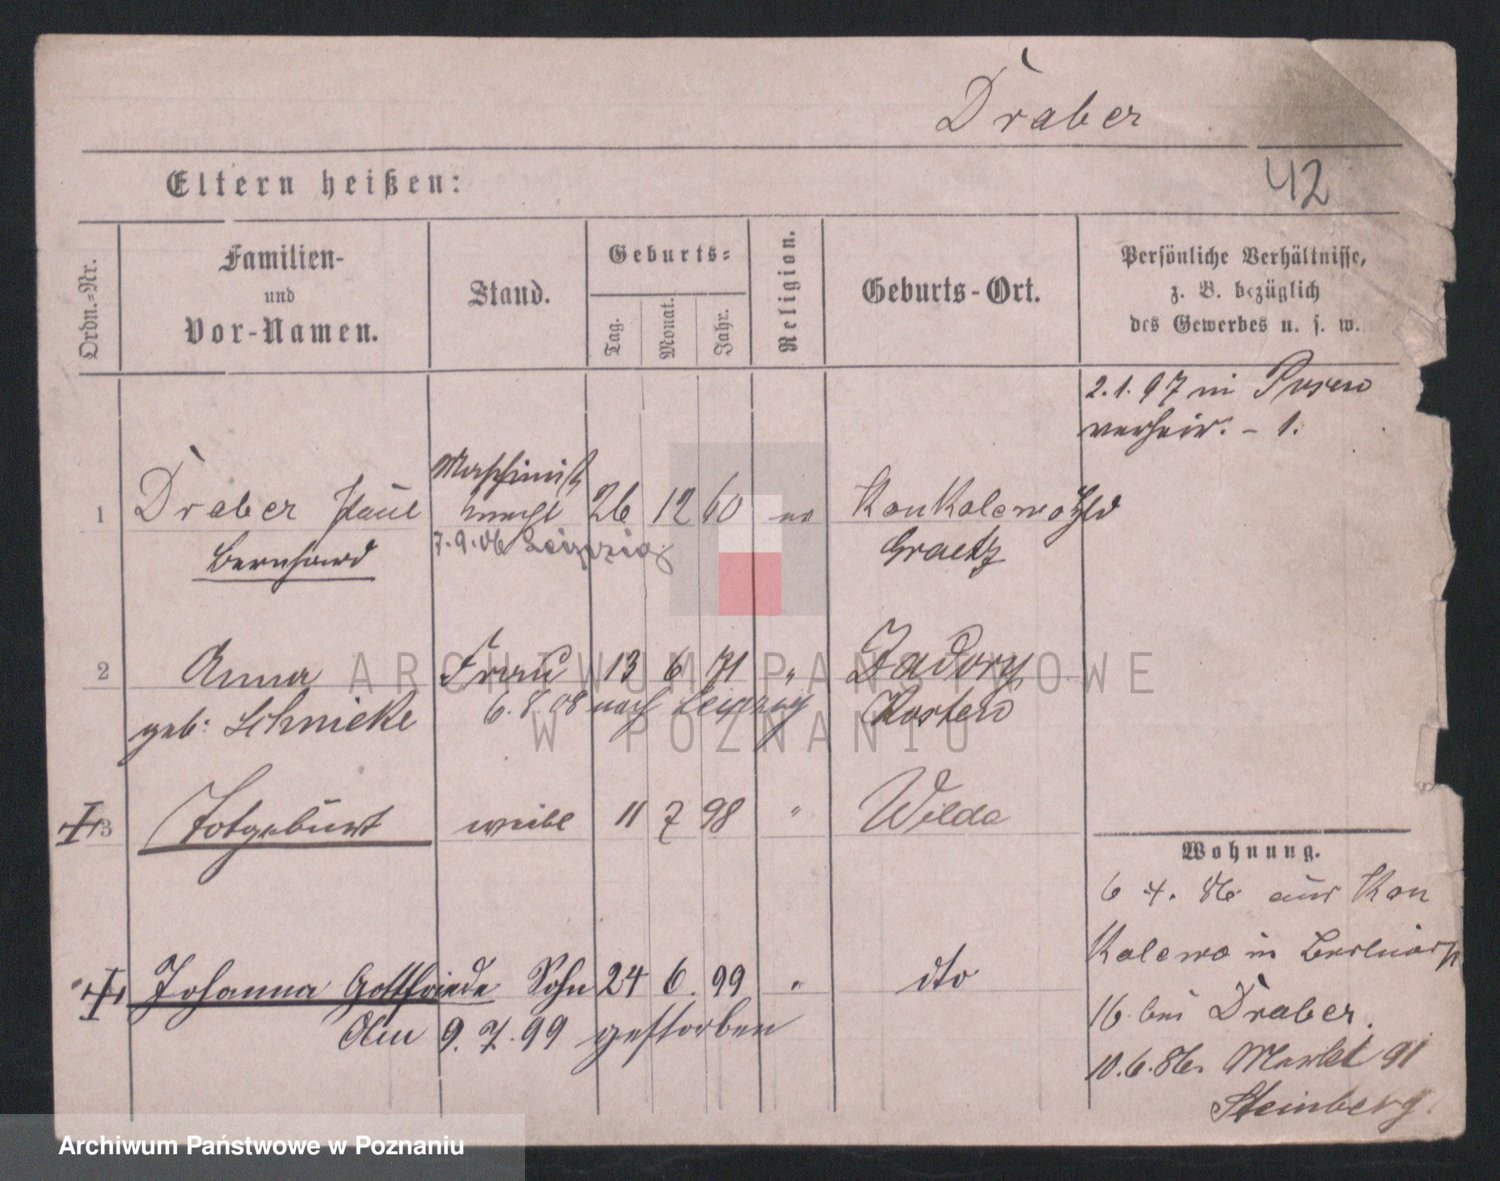 Draber
42
Eltern heißen:
Ordn.-Nr.
Familien-
und
Vor-Namen.
Stand.
Geburts-
Tag.
Monat.
Jahr.
Religion.
Geburts-Ort.
Persönliche Verhältnisse,
z. B. bezüglich
des Gewerbes u. s. w.
2.1.97 in Posen
verheir. - 1.
1 Draber Paul Maschinist 26 12 60
Bernhard
7.9.06 Leipzig
Graetz
2 Anna Frau 13 6 71 " Zadory
geb: Schnieke 6.8.08 nach Leipzig Kosten
3 Totgeburt weibl 11 7 98 " Wilda
Johanna Gottfriede Sohn 24 6. 99 " dto
Am 9.7.99 gestorben
Wohnung.
6 4. 86 aus Kon
Kalewo in
16 bei Draber.
10.6.86. Markt 91
Steinberg.
ARCHIWUM PAŃSTWOWE
W POZNANIU
Archiwum Państwowe w Poznaniu